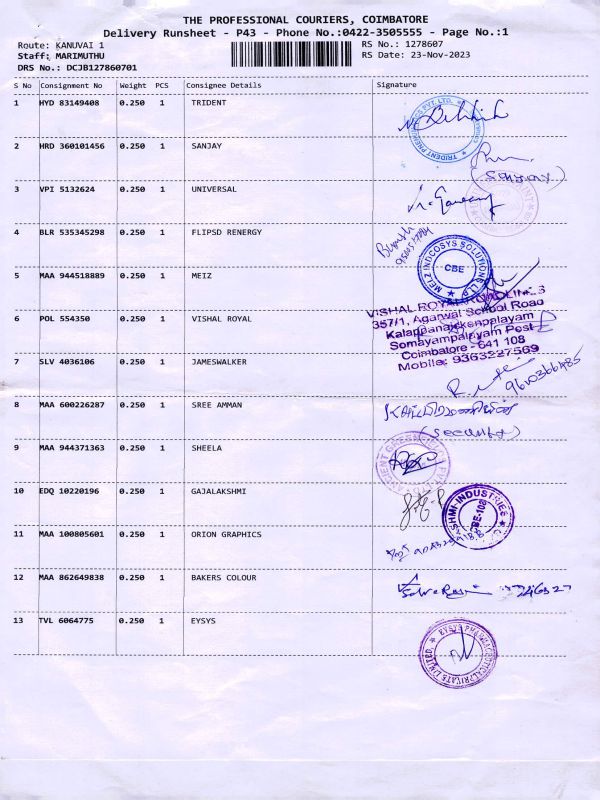 THE PROFESSIONAL COURIERS, COIMBATORE
Delivery Runsheet - P43 - Phone No.:0422-3505555 - Page No.:1
Route: KANUVAI 1 RS No.: 1278607
Staff: MARIMUTHU RS Date: 23-Nov-2023
DRS No.: DCJB127860701
S No Consignment No Weight PCS Consignee Details Signature
1 HYD 83149408 0.250 1 TRIDENT
2 HRD 360101456 0.250 1 SANJAY
3 VPI 5132624 0.250 1 UNIVERSAL
4 BLR 535345298 0.250 1 FLIPSD RENERGY
MEIZ INDCOSYS SOLUTIONS LLP
CBE
5 MAA 944518889 0.250 1 MEIZ
6 POL 554350 0.250 1 VISHAL ROYAL
VISHAL ROYAL ROADLINES
357/1, Agarwal School Road
Kalappanaickenpalayam
Somayampalayam Post
Coimbatore - 641 108
Mobile: 9363227569
7 SLV 4036106 0.250 1 JAMESWALKER
8 MAA 600226287 0.250 1 SREE AMMAN
(security)
9 MAA 944371363 0.250 1 SHEELA
10 EDQ 10220196 0.250 1 GAJALAKSHMI
INDUSTRIES
CBE-108
11 MAA 100805601 0.250 1 ORION GRAPHICS
12 MAA 862649838 0.250 1 BAKERS COLOUR
13 TVL 6064775 0.250 1 EYSYS
EYSYS PHARMACEUTICAL PRIVATE LIMITED